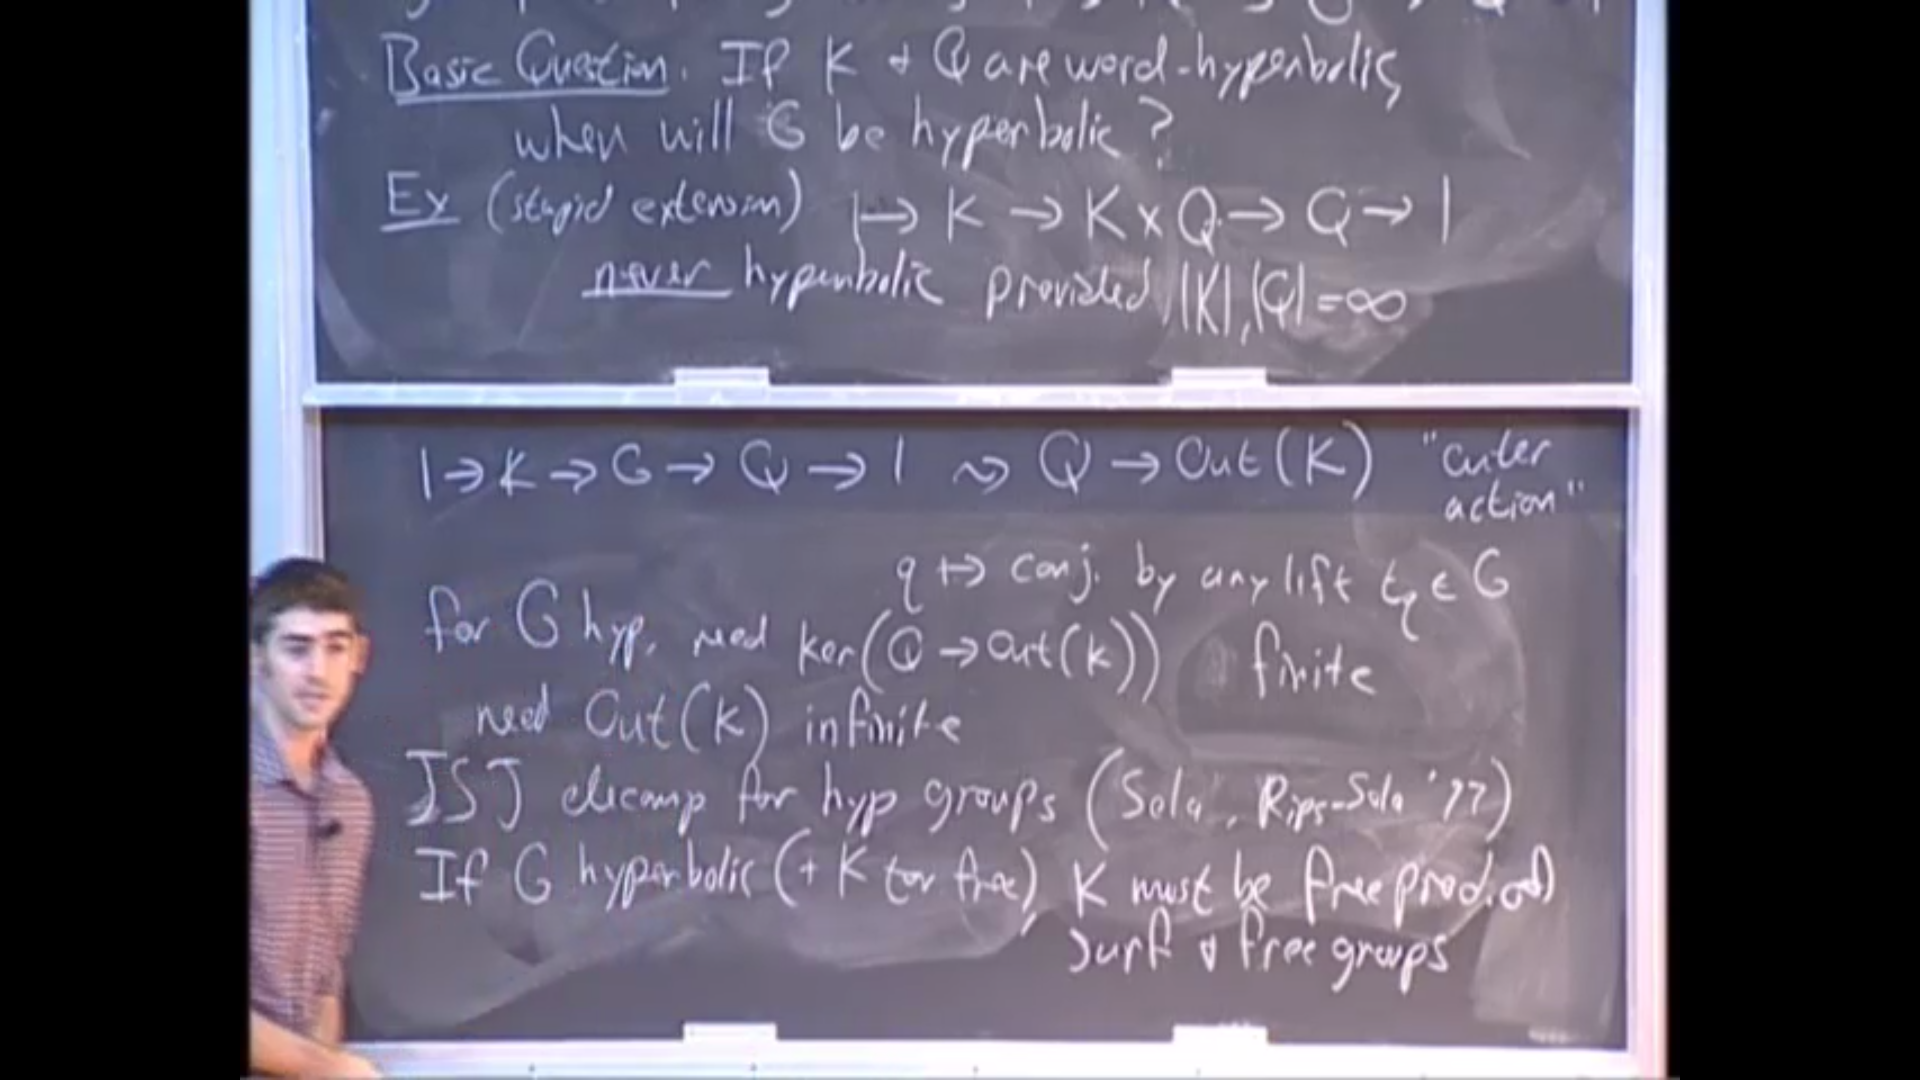 Basic Question. If K + Q are word-hyperbolic,
when will G be hyperbolic?
Ex (stupid extension) 1 → K → K x Q → Q → 1
never hyperbolic provided |K|, |Q| = ∞
1 → K → G → Q → 1 ⇝ Q → Out(K) "outer
action"
q ↦ conj. by any lift t_q ∈ G
for G hyp, need ker(Q → Out(K)) finite
need Out(K) infinite
JSJ decomp for hyp groups (Sela, Rips-Sela '97)
If G hyperbolic (+ K tor free), K must be free prod. of
surf & free groups